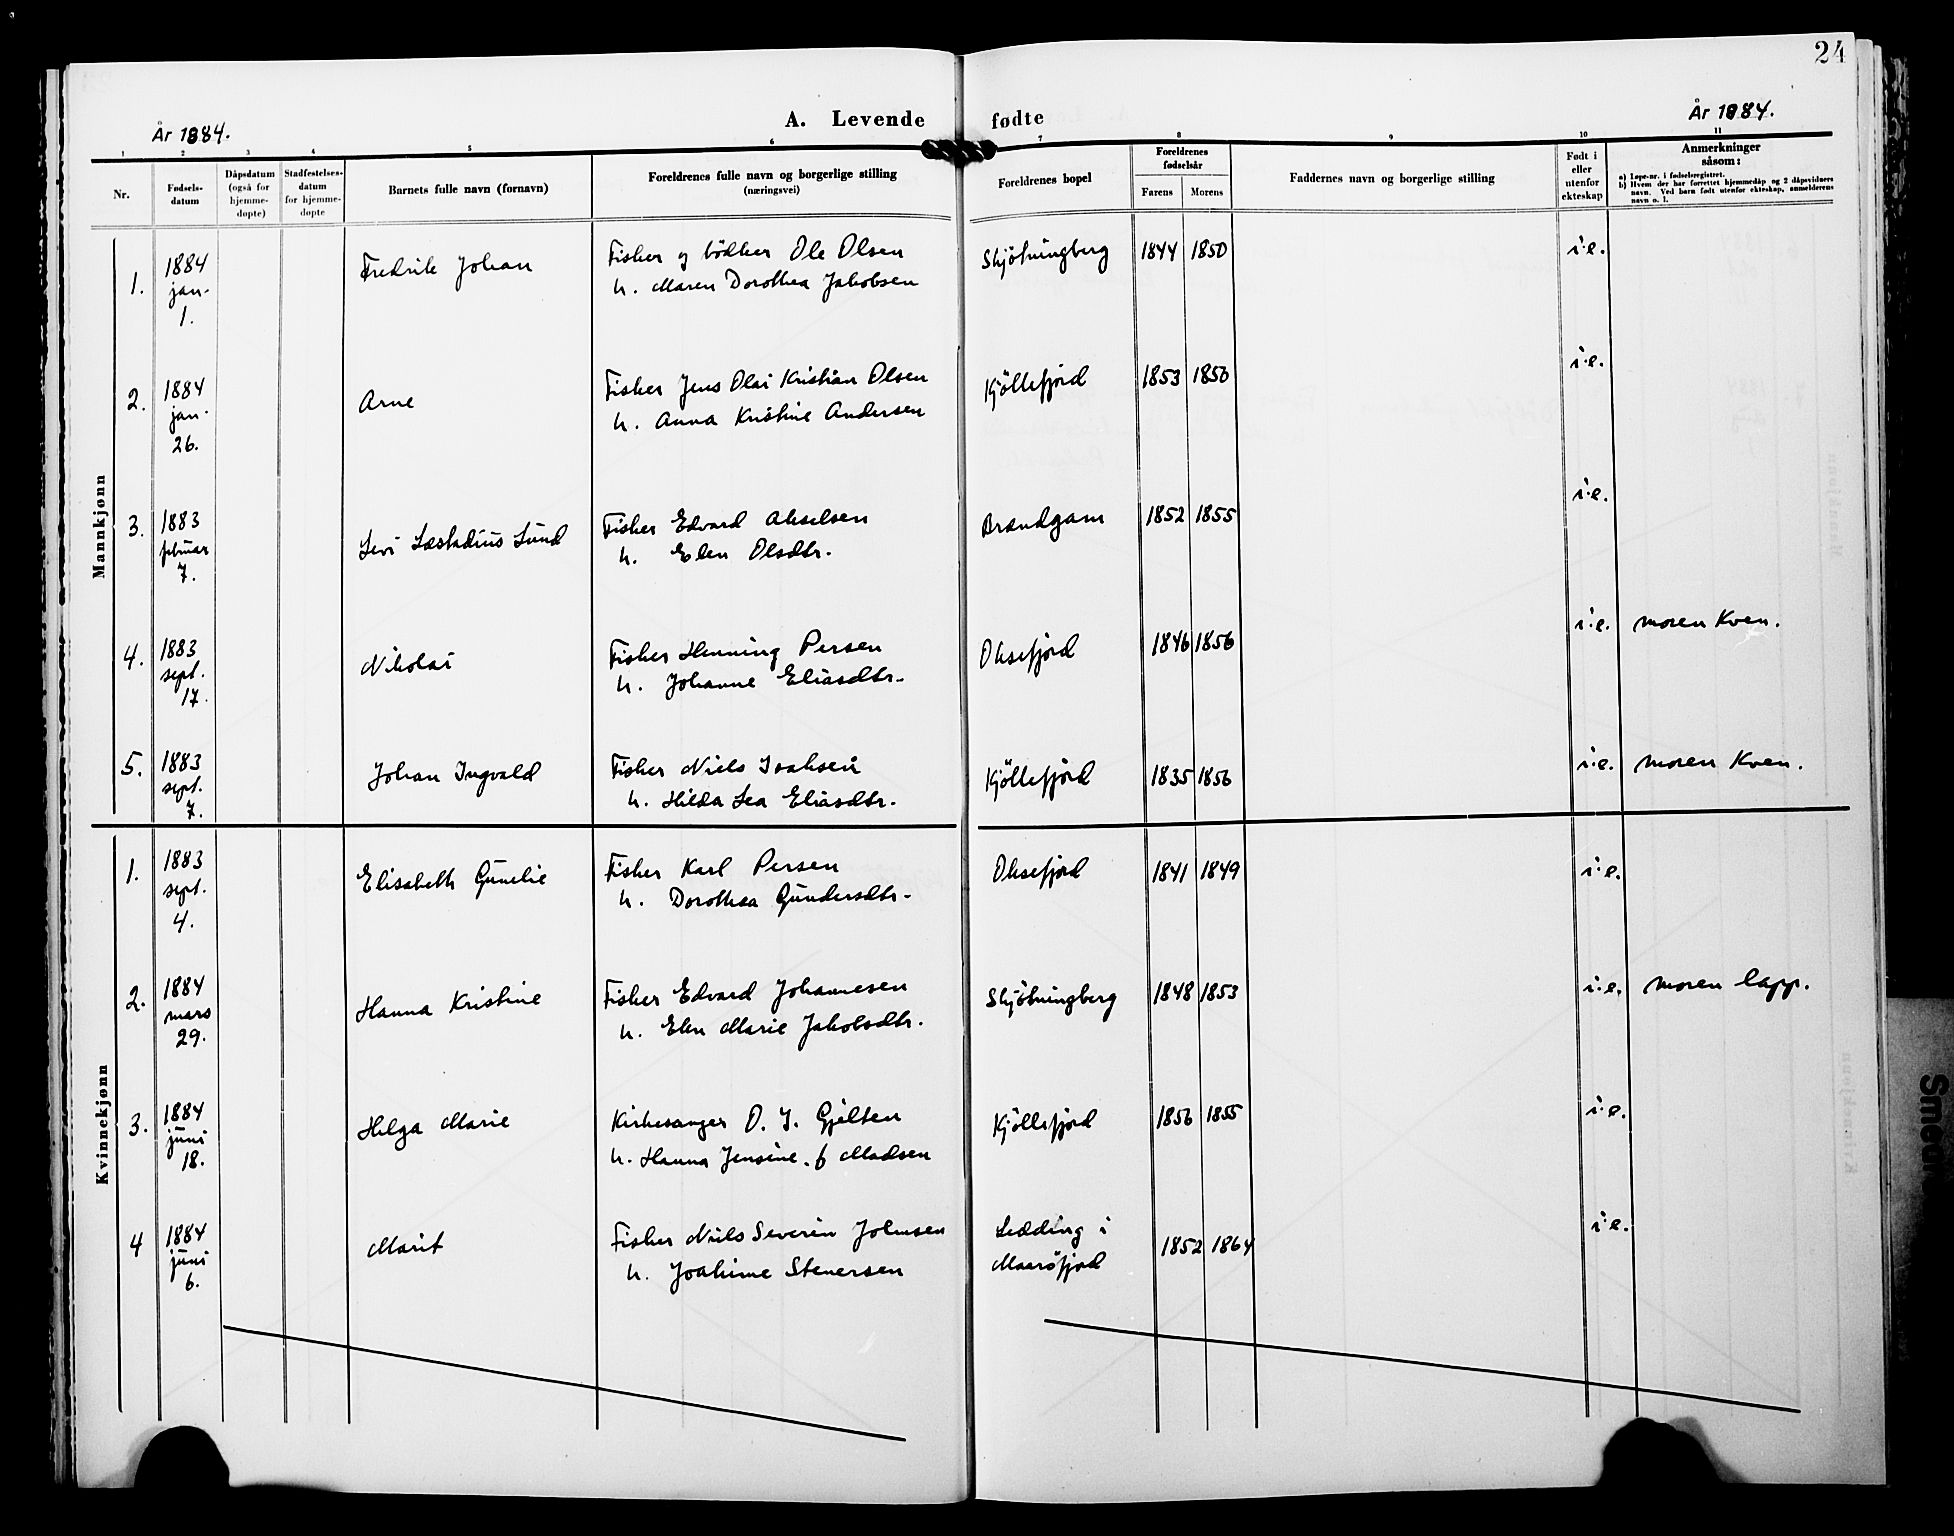 24
År 1884.
A. Levende
fødte
År 1884.
1 2 3 4 5 6 7 8 9 10 11
Nr.
Fødsels-
datum
Dåpsdatum
(også for
hjemme-
døpte)
Stadfestelses-
datum
for hjemme-
døpte
Barnets fulle navn (fornavn)
Foreldrenes fulle navn og borgerlige stilling
(næringsvei)
Foreldrenes bopel
Foreldrenes
fødselsår
Farens
Morens
Faddernes navn og borgerlige stilling
Født i
eller
utenfor
ekteskap
Anmerkninger
såsom:
a) Løpe-nr. i fødselsregistret.
b) Hvem der har forrettet hjemmedåp og 2 dåpsvidners
navn. Ved barn født utenfor ekteskap, anmelderens
navn o. l.
Mannkjønn
1.
1884
jan.
1.
Fredrik Johan
Fisker og bødker Ole Olsen
h. Maren Dorothea Jakobsen
Skjötningberg
1844 1850
i.e.
2.
1884
jan.
26.
Arne
Fisker Jens Olai Kristian Olsen
h. Anna Kristine Andersen
Kjöllefjord
1853 1850
i.e.
3.
1883
februar
7.
Levi Læstadius Lund
Fisker Edvard Akselsen
h. Elen Olsdtr.
Brændgam
1852 1855
i.e.
4.
1883
sept.
17.
Nikolai
Fisker Henning Persen
h. Johanne Eliasdtr.
Oksefjord
1846 1856
i.e.
moren Kven.
5.
1883
sept.
7.
Johan Ingvald
Fisker Niels Isaksen
h. Hilda Lea Eliasdtr.
Kjöllefjord
1835 1856
i.e.
moren Kven.
Kvinnekjønn
1.
1883
sept.
4.
Elisabeth Gunelie
Fisker Karl Persen
h. Dorothea Gundersdtr.
Oksefjord
1841 1849
i.e.
2.
1884
mars
29.
Hanna Kristine
Fisker Edvard Johannesen
h. Elen Marie Jakobsdtr.
Skjötningberg
1848 1853
i.e.
moren lapp.
3.
1884
juni
18.
Helga Marie
Kirkesanger O. J. Gjelten
h. Hanna Jensine. f Madsen
Kjöllefjord
1856 1855
i.e.
4
1884
juni
6.
Marit
Fisker Niels Severin Johnsen
h. Joakime Stenersen
Lædding i
Maaröfjord
1852 1864
i.e.